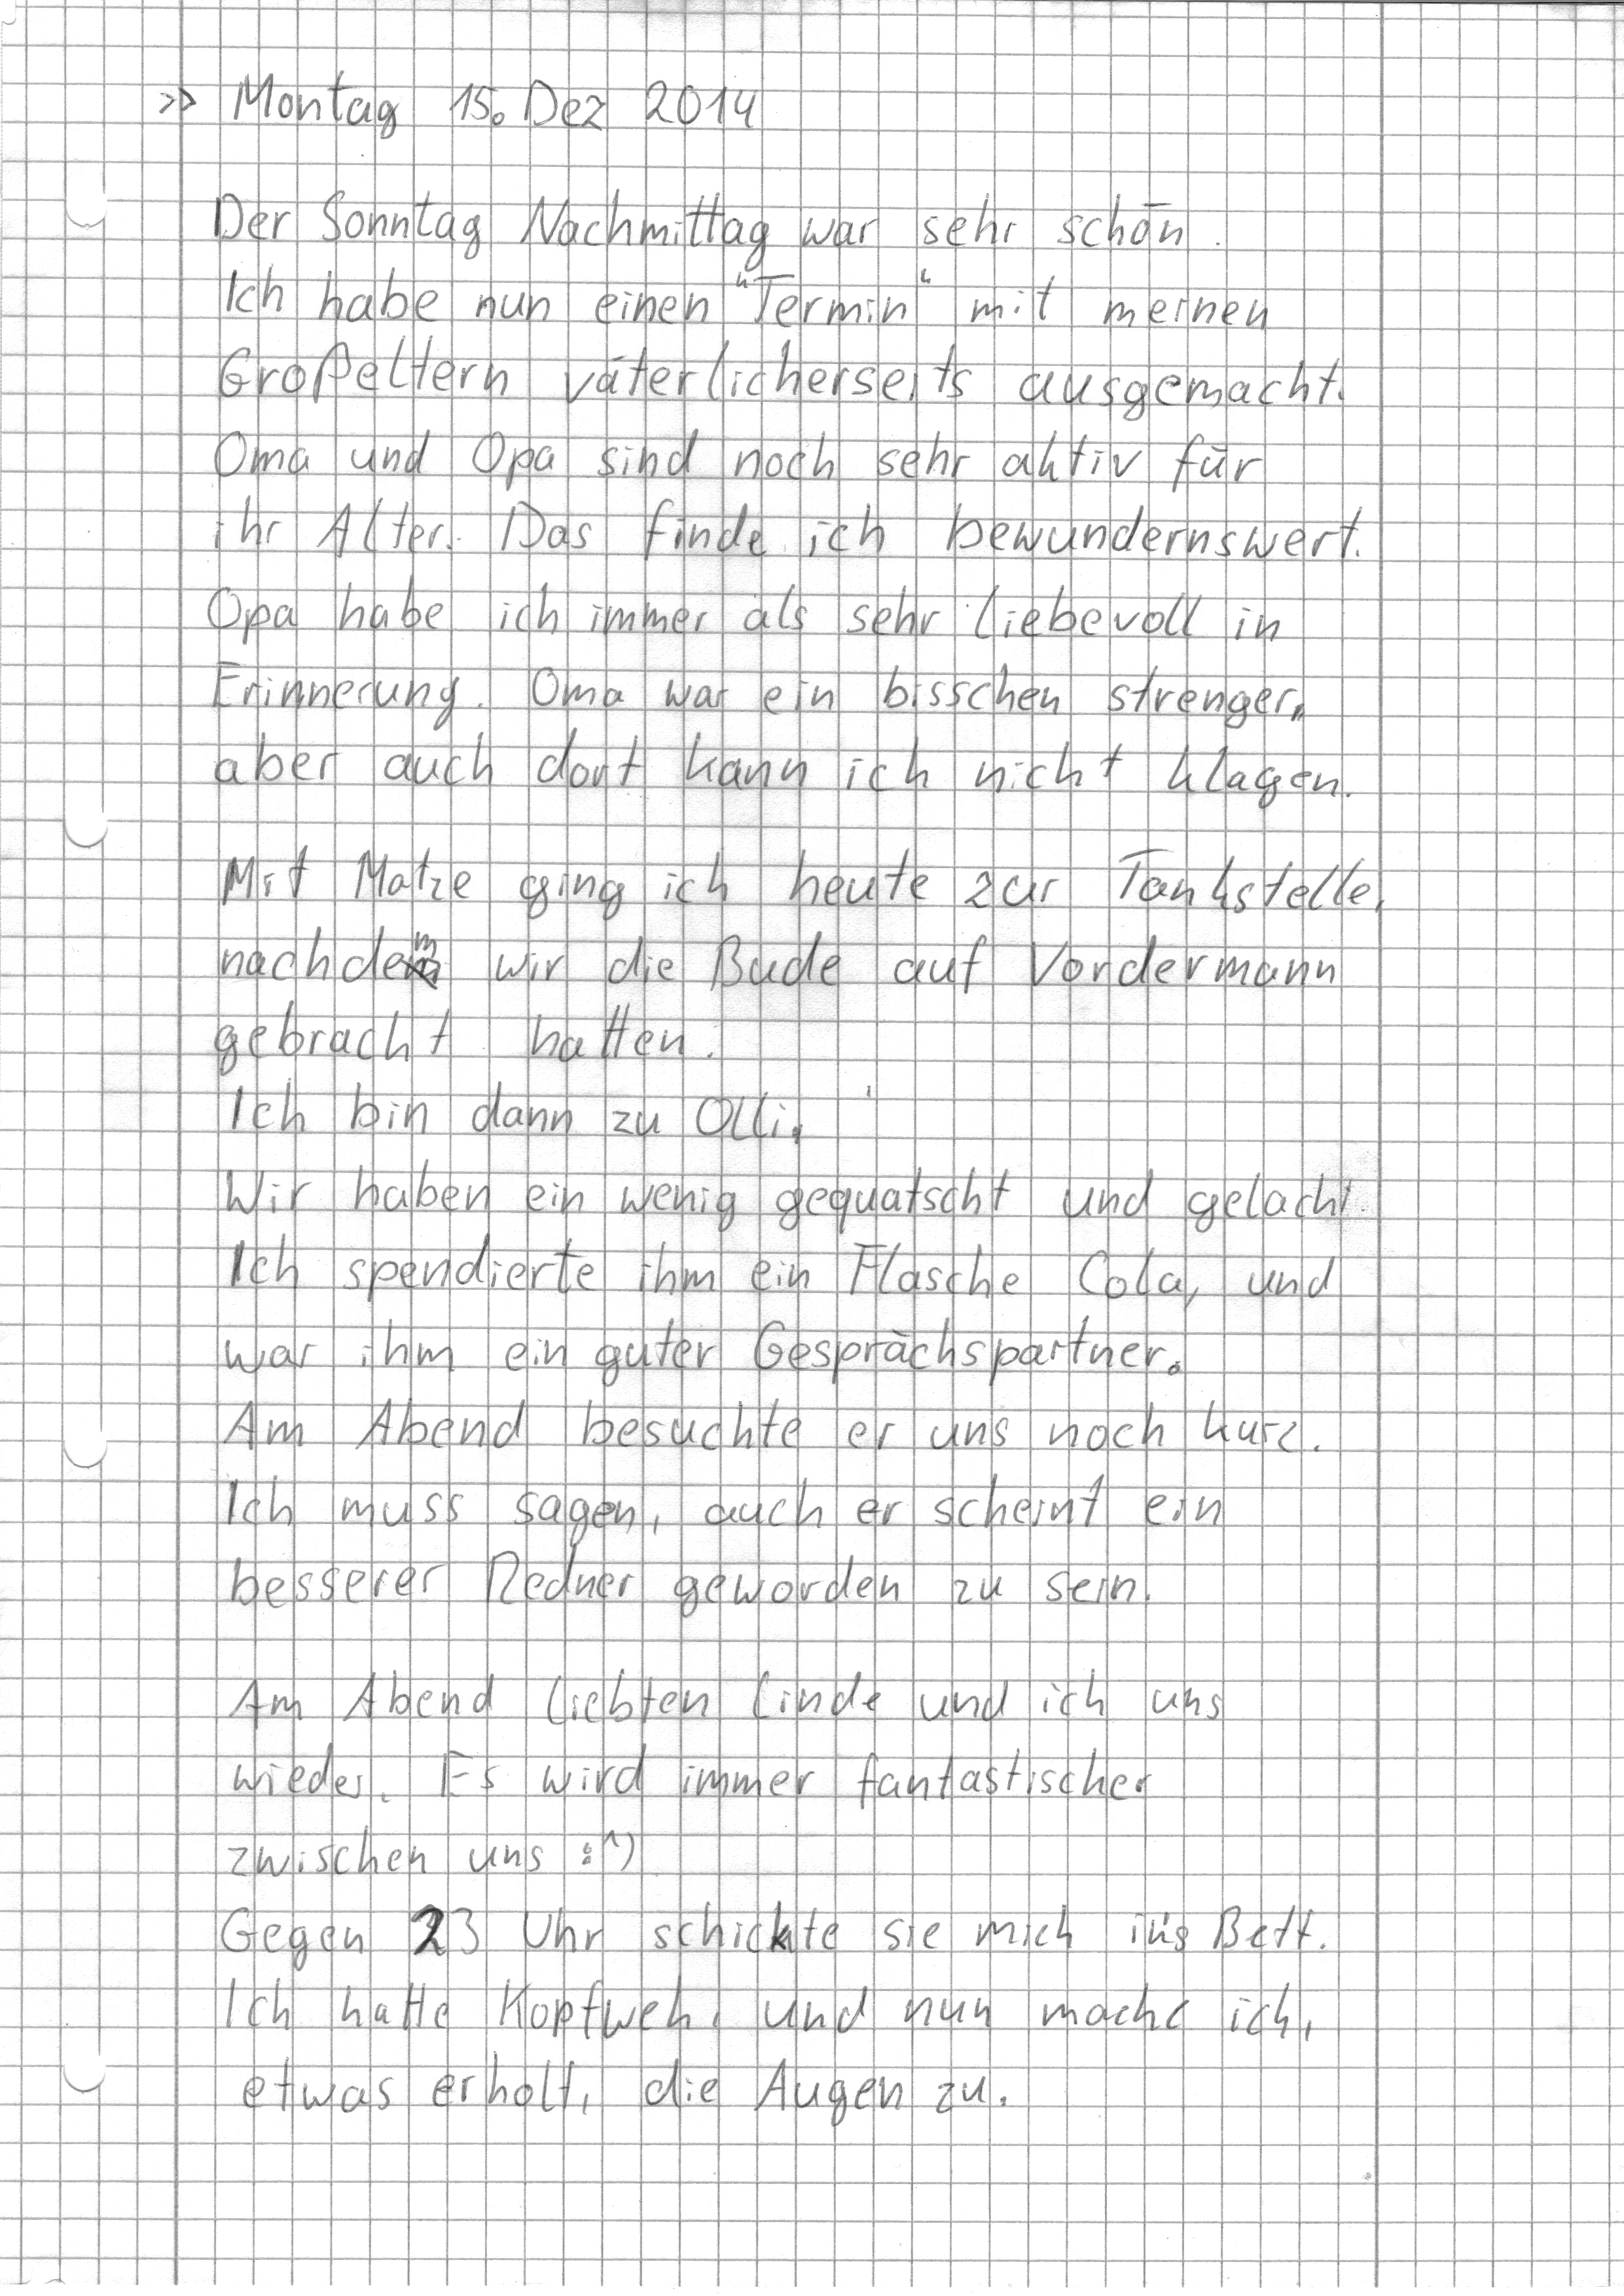 >> Montag 15. Dez 2014
Der Sonntag Nachmittag war sehr schön.
Ich habe nun einen "Termin" mit meinen
Großeltern väterlicherseits ausgemacht.
Oma und Opa sind noch sehr aktiv für
ihr Alter. Das finde ich bewundernswert.
Opa habe ich immer als sehr liebevoll in
Erinnerung. Oma war ein bisschen strenger,
aber auch dort kann ich nicht klagen.
Mit Matze ging ich heute zur Tankstelle,
nachdem wir die Bude auf Vordermann
gebracht hatten.
Ich bin dann zu Olli.
Wir haben ein wenig gequatscht und gelacht.
Ich spendierte ihm ein Flasche Cola, und
war ihm ein guter Gesprächspartner.
Am Abend besuchte er uns noch kurz.
Ich muss sagen, auch er scheint ein
besserer Redner geworden zu sein.
Am Abend liebten Linde und ich uns
wieder. Es wird immer fantastischer
zwischen uns :^)
Gegen 23 Uhr schickte sie mich in's Bett.
Ich hatte Kopfweh, und nun mache ich,
etwas erholt, die Augen zu.